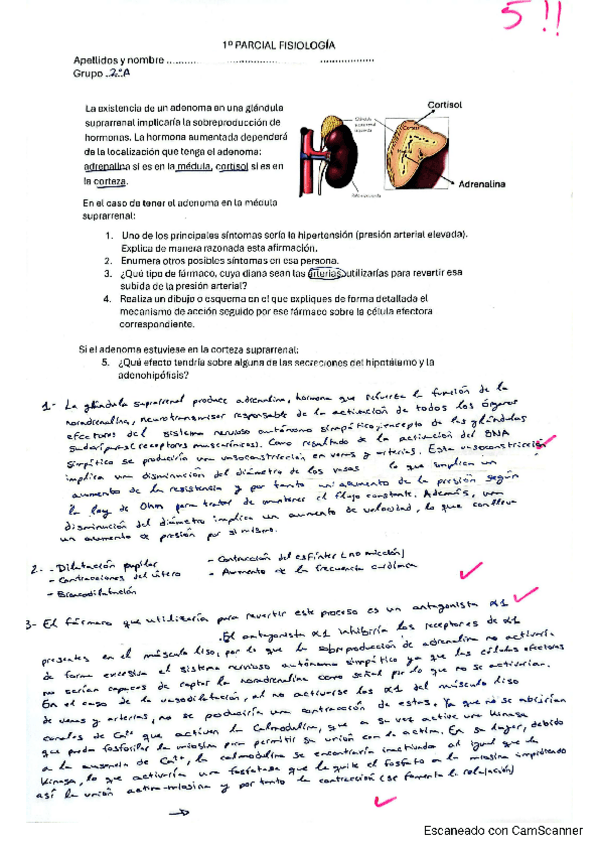 5!!
1º PARCIAL FISIOLOGÍA
Apellidos y nombre
Grupo 2ºA
La existencia de un adenoma en una glándula
suprarrenal implicaría la sobreproducción de
hormonas. La hormona aumentada dependerá
de la localización que tenga el adenoma:
adrenalina si es en la médula, cortisol si es en
la corteza.
Cortisol
Adrenalina
En el caso de tener el adenoma en la médula
suprarrenal:
1. Uno de los principales síntomas sería la hipertensión (presión arterial elevada).
Explica de manera razonada esta afirmación.
2. Enumera otros posibles síntomas en esa persona.
3. ¿Qué tipo de fármaco, cuya diana sean las arterias, utilizarías para revertir esa
subida de la presión arterial?
4. Realiza un dibujo o esquema en el que expliques de forma detallada el
mecanismo de acción seguido por ese fármaco sobre la célula efectora
correspondiente.
Si el adenoma estuviese en la corteza suprarrenal:
5. ¿Qué efecto tendría sobre alguna de las secreciones del hipotálamo y la
adenohipófisis?
1- La glándula suprarrenal produce adrenalina, hormona que refuerza la función de la
noradrenalina, neurotransmisor responsable de la activación de todos los órganos
efectores del sistema nervioso autónomo simpático, excepto de las glándulas
sudoríparas (receptores muscarínicos). Como resultado de la activación del SNA
simpático se produciría una vasoconstricción en venas y arterias. Esta vasoconstricción
implica una disminución del diámetro de los vasos lo que implica un
aumento de la resistencia y por tanto un aumento de la presión según
la ley de Ohm para tratar de mantener el flujo constante. Además, una
disminución del diámetro implica un aumento de velocidad, lo que conlleva
un aumento de presión por sí mismo.
2- - Dilatación pupilar - Contracción del esfínter (no micción)
- Contracciones del útero - Aumento de la frecuencia cardíaca
- Broncodilatación
3- El fármaco que utilizaría para revertir este proceso es un antagonista α1
. El antagonista α1 inhibiría los receptores de α1
presentes en el músculo liso, por lo que la sobreproducción de adrenalina no activaría
de forma excesiva el sistema nervioso autónomo simpático ya que las células efectoras
no serían capaces de captar la noradrenalina como señal por lo que no se activarían.
En el caso de la vasodilatación, al no activarse los α1 del músculo liso
de venas y arterias, no se produciría una contracción de estas. Ya que no se abrirían
canales de Ca²⁺ que activen la Calmodulina, que a su vez active una kinasa
que pueda fosforilar la miosina para permitir su unión con la actina. En su lugar, debido
a la ausencia de Ca²⁺, la calmodulina se encontraría inactivada al igual que la
kinasa, lo que activaría una fosfatasa que le quite el fosfato a la miosina impidiendo
así la unión actina-miosina y por tanto la contracción (se fomenta la relajación)
Escaneado con CamScanner